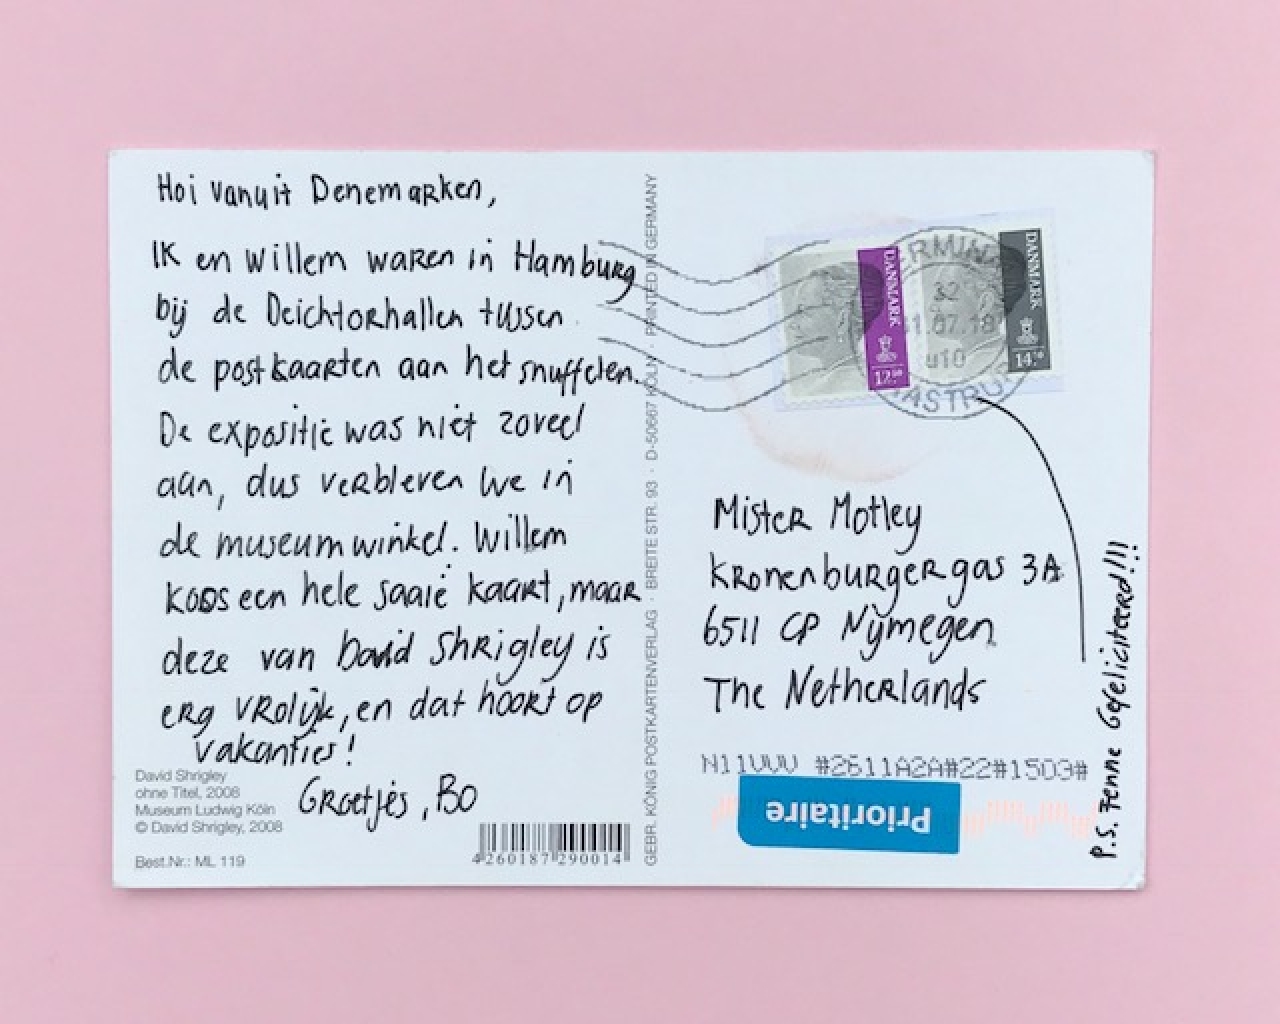 Hoi vanuit Denemarken,
Ik en Willem waren in Hamburg
bij de Deichtorhallen tussen
de postkaarten aan het snuffelen.
De expositie was niet zoveel
aan, dus verbleven we in
de museumwinkel. Willem
koos een hele saaie kaart, maar
deze van David Shrigley is
erg vrolijk, en dat hoort op
vakanties!
Groetjes, Bo
David Shrigley
ohne Titel, 2008
Museum Ludwig Köln
© David Shrigley, 2008
Best.Nr.: ML 119
4260187290014
GEBR. KÖNIG POSTKARTENVERLAG · BREITE STR. 93 · D-50667 KÖLN · PRINTED IN GERMANY
DANMARK
12.00
DANMARK
14.50
Mister Motley
Kronenburgergas 3A
6511 CP Nijmegen
The Netherlands
N11VVV #2611A2A#22#1503#
Prioritaire
P.S. Fenne Gefeliciteerd!!!